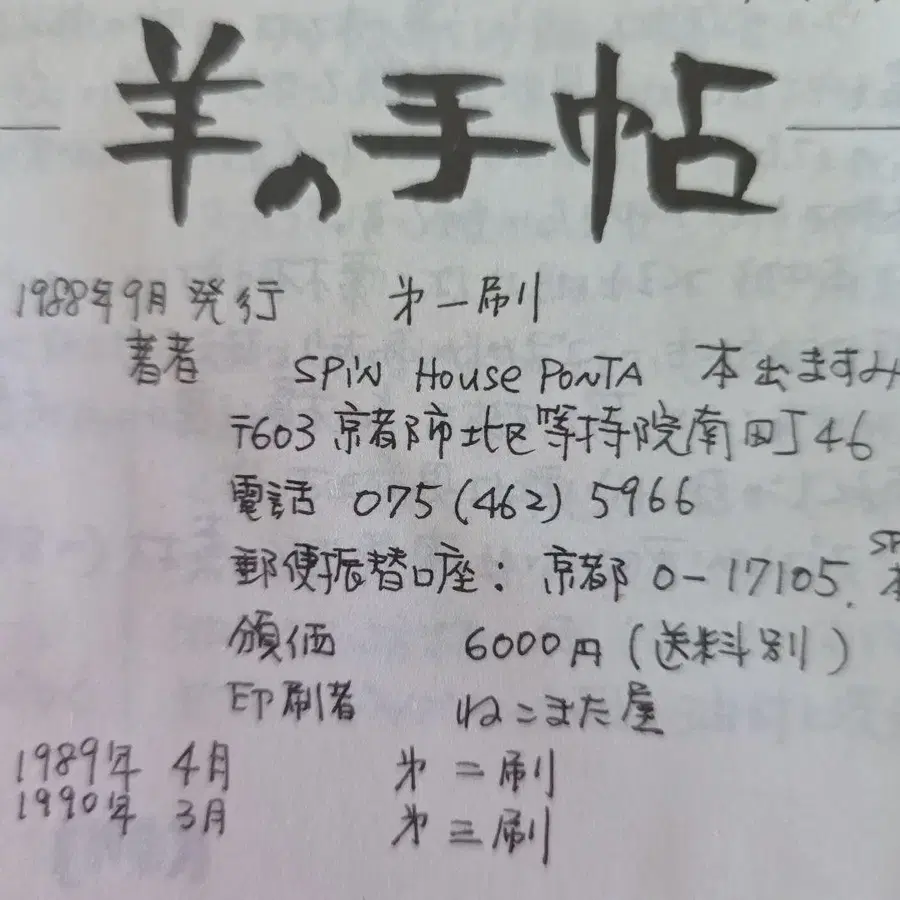 羊の手帖
1988年9月 発行 第一刷
著者 SPiN House PoNTA 本出ますみ
〒603 京都市北区等持院南町46
電話 075(462) 5966
郵便振替口座: 京都 0-17105. SP
頒価 6000円 (送料別)
印刷者 ねこまた屋
1989年 4月 第二刷
1990年 3月 第三刷